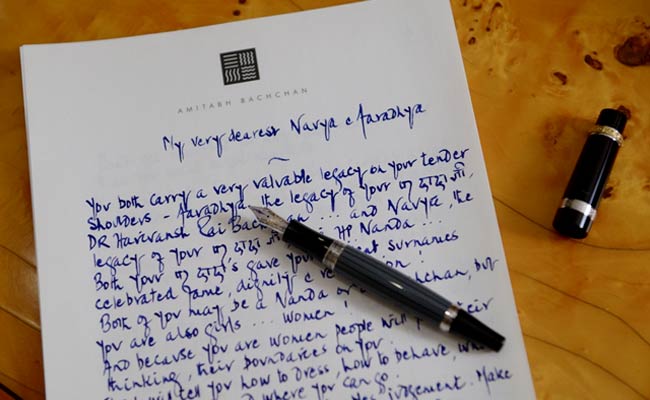 AMITABH BACHCHAN
My very dearest Navya & Aaradhya
You both carry a very valuable legacy on your tender
shoulders - Aaradhya, the legacy of your दादाजी,
DR Harivansh Rai Bach ... and Navya, the
legacy of your दादाजी HP Nanda ...
Both your दादाजी's gave your surnames
celebrated fame, dignity &
Both of you may be a Nanda or a Bachchan, but
you are also girls ... women !
And because you are women people will their
thinking, their boundaries on you.
tell you how to dress, how to behave,
where you can go.
judgement. Make